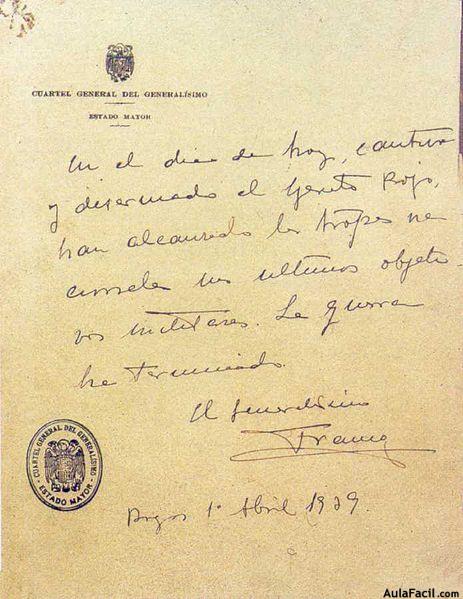 CUARTEL GENERAL DEL GENERALÍSIMO
ESTADO MAYOR
En el dia de hoy, cautivo
y desarmado el Ejercito Rojo,
han alcanzado las tropas na-
cionales sus ultimos objeti-
vos militares. La guerra
ha terminado.
El Generalísimo
Franco
Burgos 1º Abril 1939.
CUARTEL GENERAL DEL GENERALÍSIMO
ESTADO MAYOR
AulaFacil.com